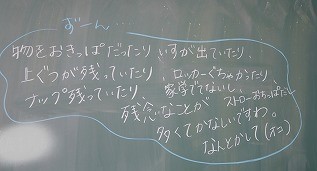 ずーん…
物をおきっぱだったり いすが出ていたり、
上ぐつが残っていたり、ロッカーぐちゃがったり
ナップ残っていたり、家学でてないし、
ストローおちっぱだし
残念なことが
多くてかなしいですわ。
なんとかして(オニ)